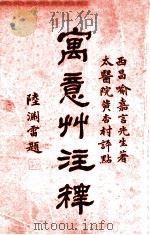 西昌喻嘉言先生著
太醫院黄杏村評點
寓意艸注釋
陸淵雷題